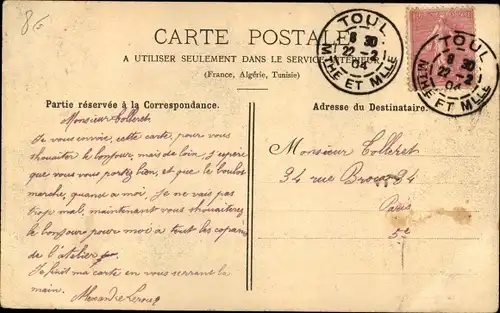 8E
CARTE POSTALE
A UTILISER SEULEMENT DANS LE SERVICE INTERIEUR
(France, Algérie, Tunisie)
TOUL
8 30
22-2
04
MTHE ET MLLE
TOUL
8 30
22-2
04
MTHE ET MLLE
Partie réservée à la Correspondance.
Adresse du Destinataire.
Monsieur Colleret
Je vous envoie, cette carte, pour vous
shouaiter le bonjour, mais de loin, j'espère
que vous vous portez bien, et que le boulot
marche, quand a moi, je ne vais pas
trop mal, maintenant vous shouaiterez
le bonjour pour moi a tout les copains
de l'atelier
Je finit ma carte en vous serrent la
main.
Alexandre Leroux
Monsieur Colleret
34 rue Broca 34
Paris
5e